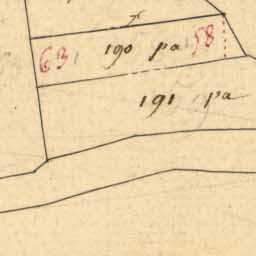 63 190 pa 58
191 pa